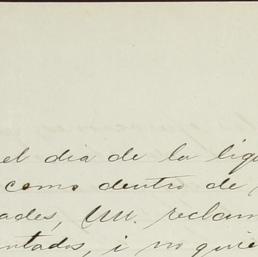 el dia de la liqu
como dentro de
ades, UU. reclam
ntados, i no quie